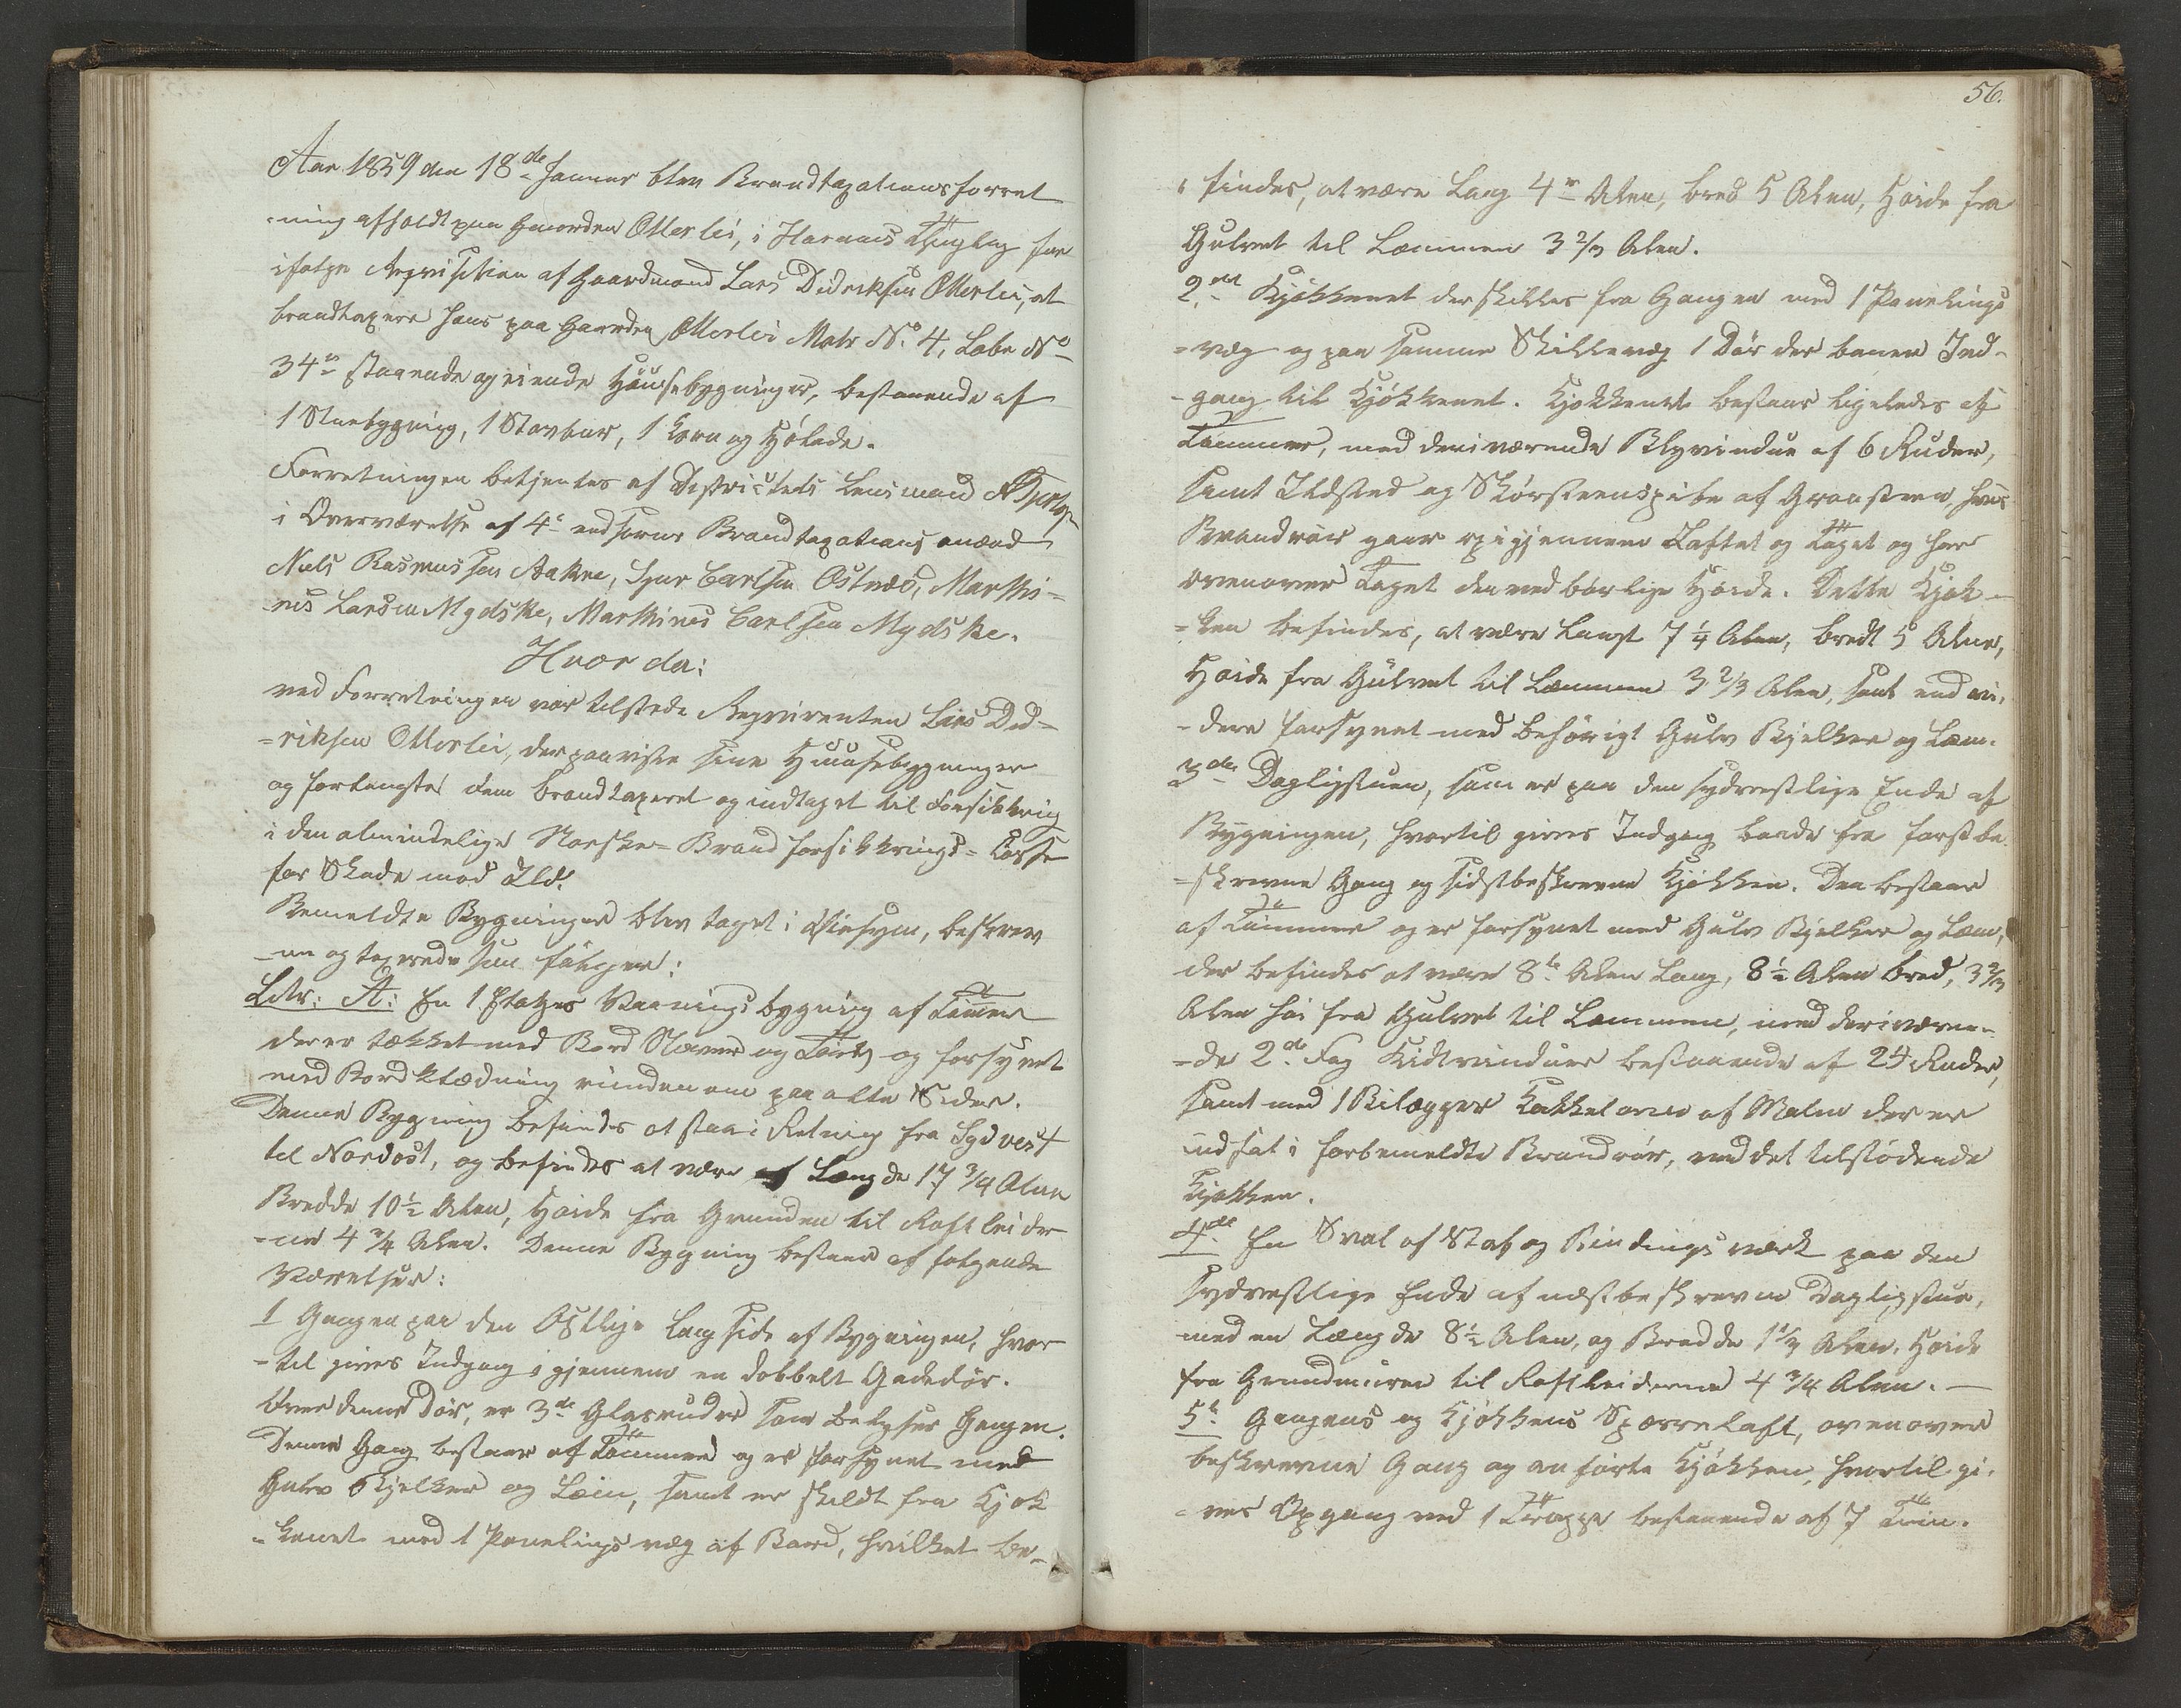 Aar 1859 den 18de Januar blev Brandtaxationsforret
-ning afholdt paa Gaarden Otterlei, i Harams Thinglag for
ifølge Reqvisition af Gaardmand Lars Didriksen Otterlei, at
brandtaxere hans paa Gaarden Otterlei Matr No. 4, Løbe No
34 staaende og eiende Huusebygninger, bestaaende af
1 Stuebygning, 1 Stavbur, 1 Korn og Hølade.
Forretningen betjentes af Districtets Lensmand
i Overværelse af 4 eedsorne Brandtaxationsmænd
Niels Rasmussen Aakre, Sjur Carlsen Østnæs, Marthi-
nus Larsen Mydske, Marthinus Carlsen Mydske.
Hvor da:
ved Forretningen var tilstede Reqvirenten Lars Did-
=riksen Otterlei, der paaviste sine Huusebygninger
og forlangte dem brandtaxeret og indtaget til Forsikkring
i den almindelige Norske=Brandforsikkrings=Casse
for Skade mod Ild.
Bemeldte Bygninger blev taget i Øiesyn, beskrev
-ne og taxerede som følger:
Litr: A: En 1 Etages Vaaningsbygning af Tømmer
der er tækket med Bord Næver og Tørv og forsynet
med Bordklædning runden om paa alle Sider.
Denne Bygning befindes at staa i Retning fra Sydvest
til Nordost, og befindes at være af Længde 17 3/4 Alen
Bredde 10½ Alen, Høide fra Grunden til Raftleider
-ne 4 3/4 Alen. Denne Bygning bestaar af følgende
Værelser:
1 Gangen paa den Østlige Langside af Bygningen, hvor
-til gives Indgang igjennem en dobbelt Gadedør.
Over denne Dør, er 3de Glasruder som belyser Gangen.
Denne Gang bestaar af Tømmer og er forsynet med
Gulv Bjelker og Læm, samt er skildt fra Kjøk
-kenet med 1 Panelingsvæg af Bord, hvilket be-
56.
findes, at være Lang 4 Alen, bred 5 Alen, Høide fra
Gulvet til Læmmen 3 2/3 Alen.
2det Kjøkkenet der skilles fra Gangen med 1 Panelings
=væg og paa samme Skillevæg 1 Dør der baner Ind-
-gang til Kjøkkenet. Kjøkkenet bestaar ligeledes af
Tømmer, med deri værende Blyvindue af 6 Ruder,
samt Ildsted og Skorsteenspibe af Graasteen, hvis
Brandrør gaar op igjennem Laftet og Taget og har
ovenover Taget den ved børlige Høide. Dette Kjøk-
=ken befindes, at være Langt 7 ¼ Alen, bredt 5 Alen,
Høide fra Gulvet til Læmmen 3 2/3 Alen, samt end vi-
-dere forsynet med behørigt Gulv Bjelker og Læm.
3die Dagligstuen, som er paa den sydvestlige Ende af
Bygningen, hvortil gives Indgang baade fra førstbe
=skrevne Gang og sidstbeskrevne Kjøkken. Den bestaar
af Tømmer og er forsynet med Gulv Bjelker og Læm,
der befindes at være 8te Alen Lang, 8½ Alen bred, 3 2/3
Alen høi fra Gulvet til Læmmen, med deri være-
=de 2de Fag Kidtvinduer bestaaende af 24 Ruder,
samt med 1 Bilægger Kakkelovn af Malm der er
indsat i forbemeldte Brandrør, ved det tilstødende
Kjøkken.
4de En Sval af Stav og Bindingsværk paa den
sydvestlige Ende af næstbeskrevne Dagligstue,
med en Længde 8½ Alen, og Bredde 1 1/3 Alen. Høide
fra Grundmuren til Raftleiderne 4 3/4 Alen. —
5te Gangens og Kjøkkens Sperreloft, ovenover
beskrevne Gang og anførte Kjøkken, hvortil gi-
-ves Opgang ved 1 Trappe bestaaende af 7 Trin.